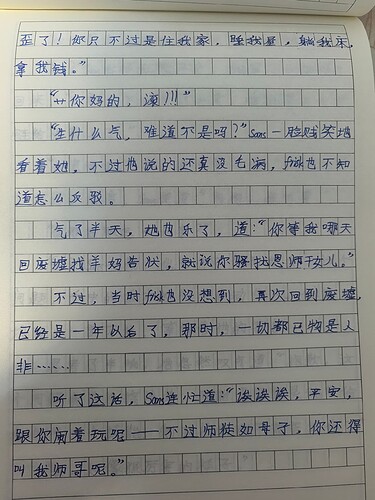 歪了！你只不过是住我家，睡我屋，躺我床，
拿我钱。”
“艹你妈的，滚!!!”
“生什么气，难道不是吗？”Sans一脸贱笑地
看着她，不过他说的还真没毛病，frisk也不知
道怎么反驳。
气了半天，她也乐了，道：“你等我哪天
回废墟找羊妈告状，就说你骚扰恩师女儿。”
不过，当时frisk也没想到，再次回到废墟，
已经是一年以后了，那时，一切都已物是人
非……
听了这话，Sans连忙道：“诶诶诶，平安，
跟你闹着玩呢——不过师徒如母子，你还得
叫我师哥呢。”